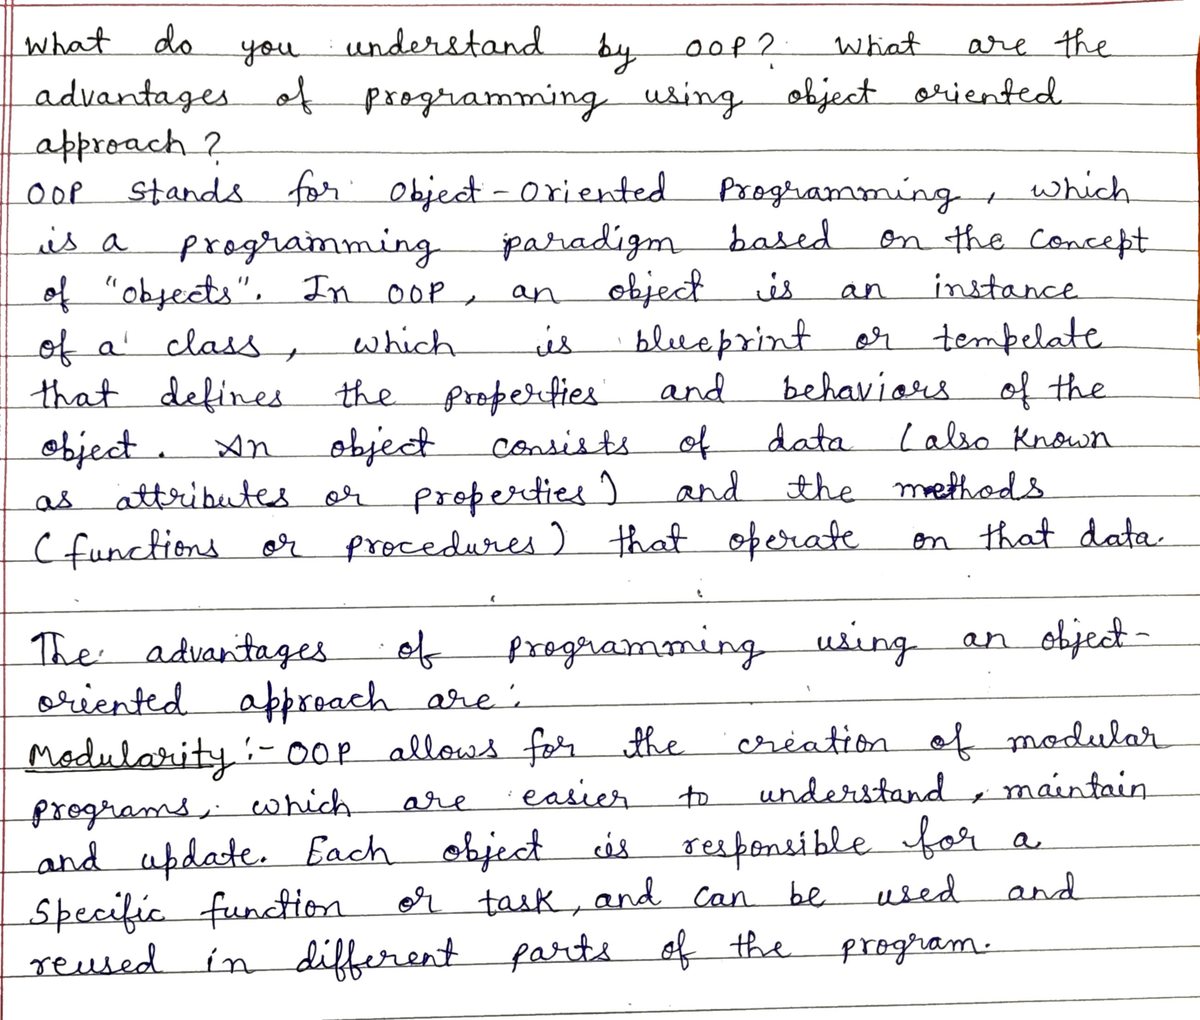 What do you understand by OOP? What are the
advantages of programming using object oriented
approach?
OOP stands for Object-Oriented Programming, which
is a programming paradigm based on the concept
of "objects". In OOP, an object is an instance
of a class, which is blueprint or tempelate
that defines the properties and behaviors of the
object. An object consists of data (also known
as attributes or properties) and the methods
(functions or procedures) that operate on that data.
The advantages of programming using an object-
oriented approach are:
Modularity :- OOP allows for the creation of modular
programs, which are easier to understand, maintain
and update. Each object is responsible for a
specific function or task, and can be used and
reused in different parts of the program.